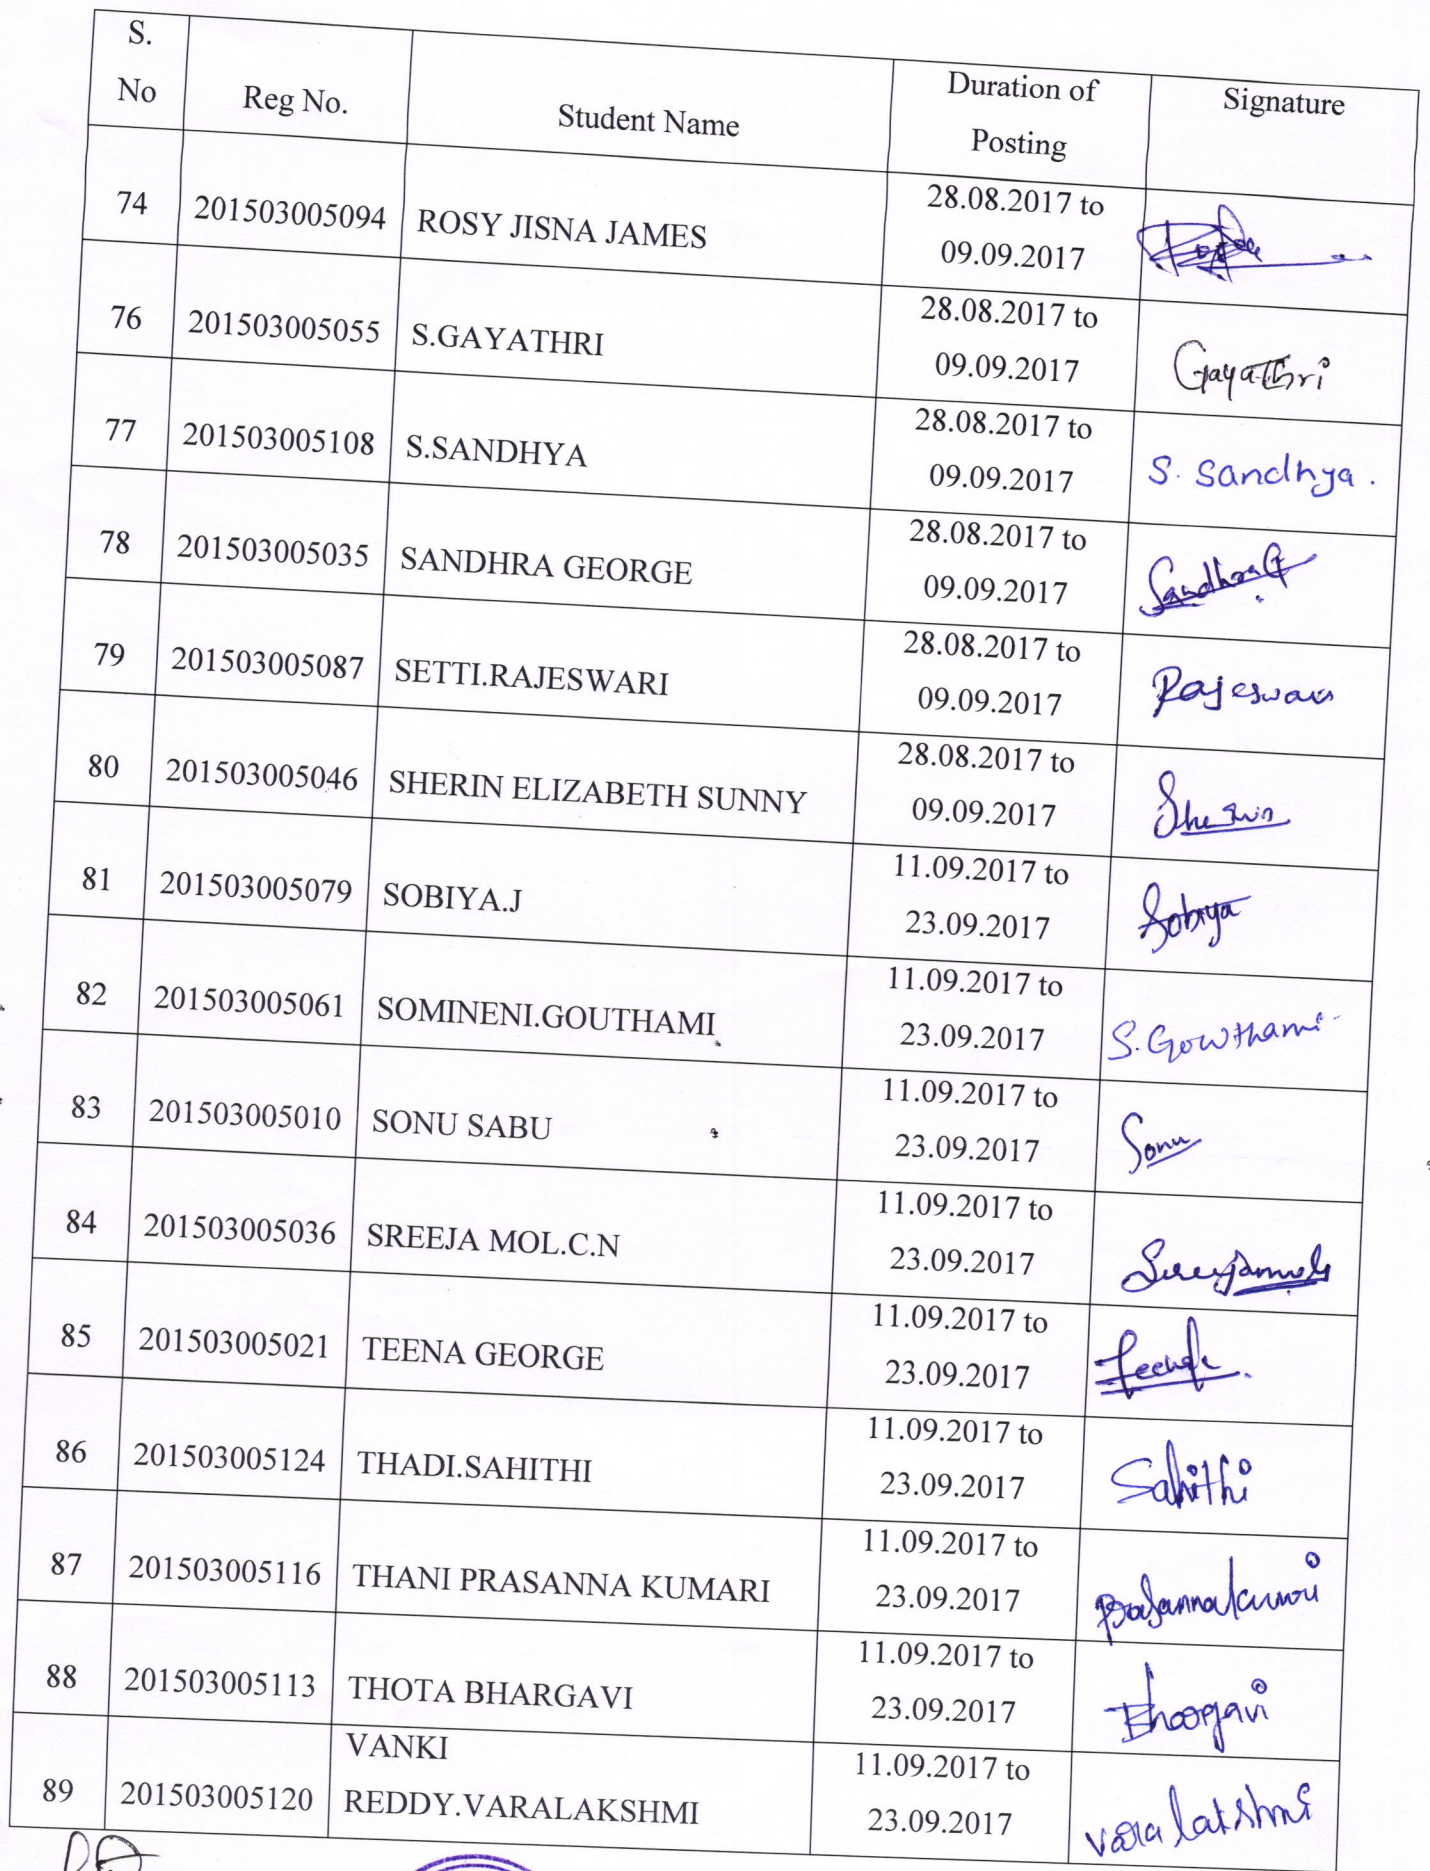 S. No Reg No. Student Name Duration of Posting Signature
74 201503005094 ROSY JISNA JAMES 28.08.2017 to 09.09.2017
76 201503005055 S.GAYATHRI 28.08.2017 to 09.09.2017 Gayathri
77 201503005108 S.SANDHYA 28.08.2017 to 09.09.2017 S. Sandhya.
78 201503005035 SANDHRA GEORGE 28.08.2017 to 09.09.2017 Sandhra G
79 201503005087 SETTI.RAJESWARI 28.08.2017 to 09.09.2017 Rajeswari
80 201503005046 SHERIN ELIZABETH SUNNY 28.08.2017 to 09.09.2017 Sherin
81 201503005079 SOBIYA.J 11.09.2017 to 23.09.2017 Sobiya
82 201503005061 SOMINENI.GOUTHAMI 11.09.2017 to 23.09.2017 S. Gowthami
83 201503005010 SONU SABU 11.09.2017 to 23.09.2017 Sonu
84 201503005036 SREEJA MOL.C.N 11.09.2017 to 23.09.2017 Sreejamol
85 201503005021 TEENA GEORGE 11.09.2017 to 23.09.2017
86 201503005124 THADI.SAHITHI 11.09.2017 to 23.09.2017 Sahithi
87 201503005116 THANI PRASANNA KUMARI 11.09.2017 to 23.09.2017 Prasannakumari
88 201503005113 THOTA BHARGAVI 11.09.2017 to 23.09.2017 Bhargavi
89 201503005120 VANKI REDDY.VARALAKSHMI 11.09.2017 to 23.09.2017 varalakshmi